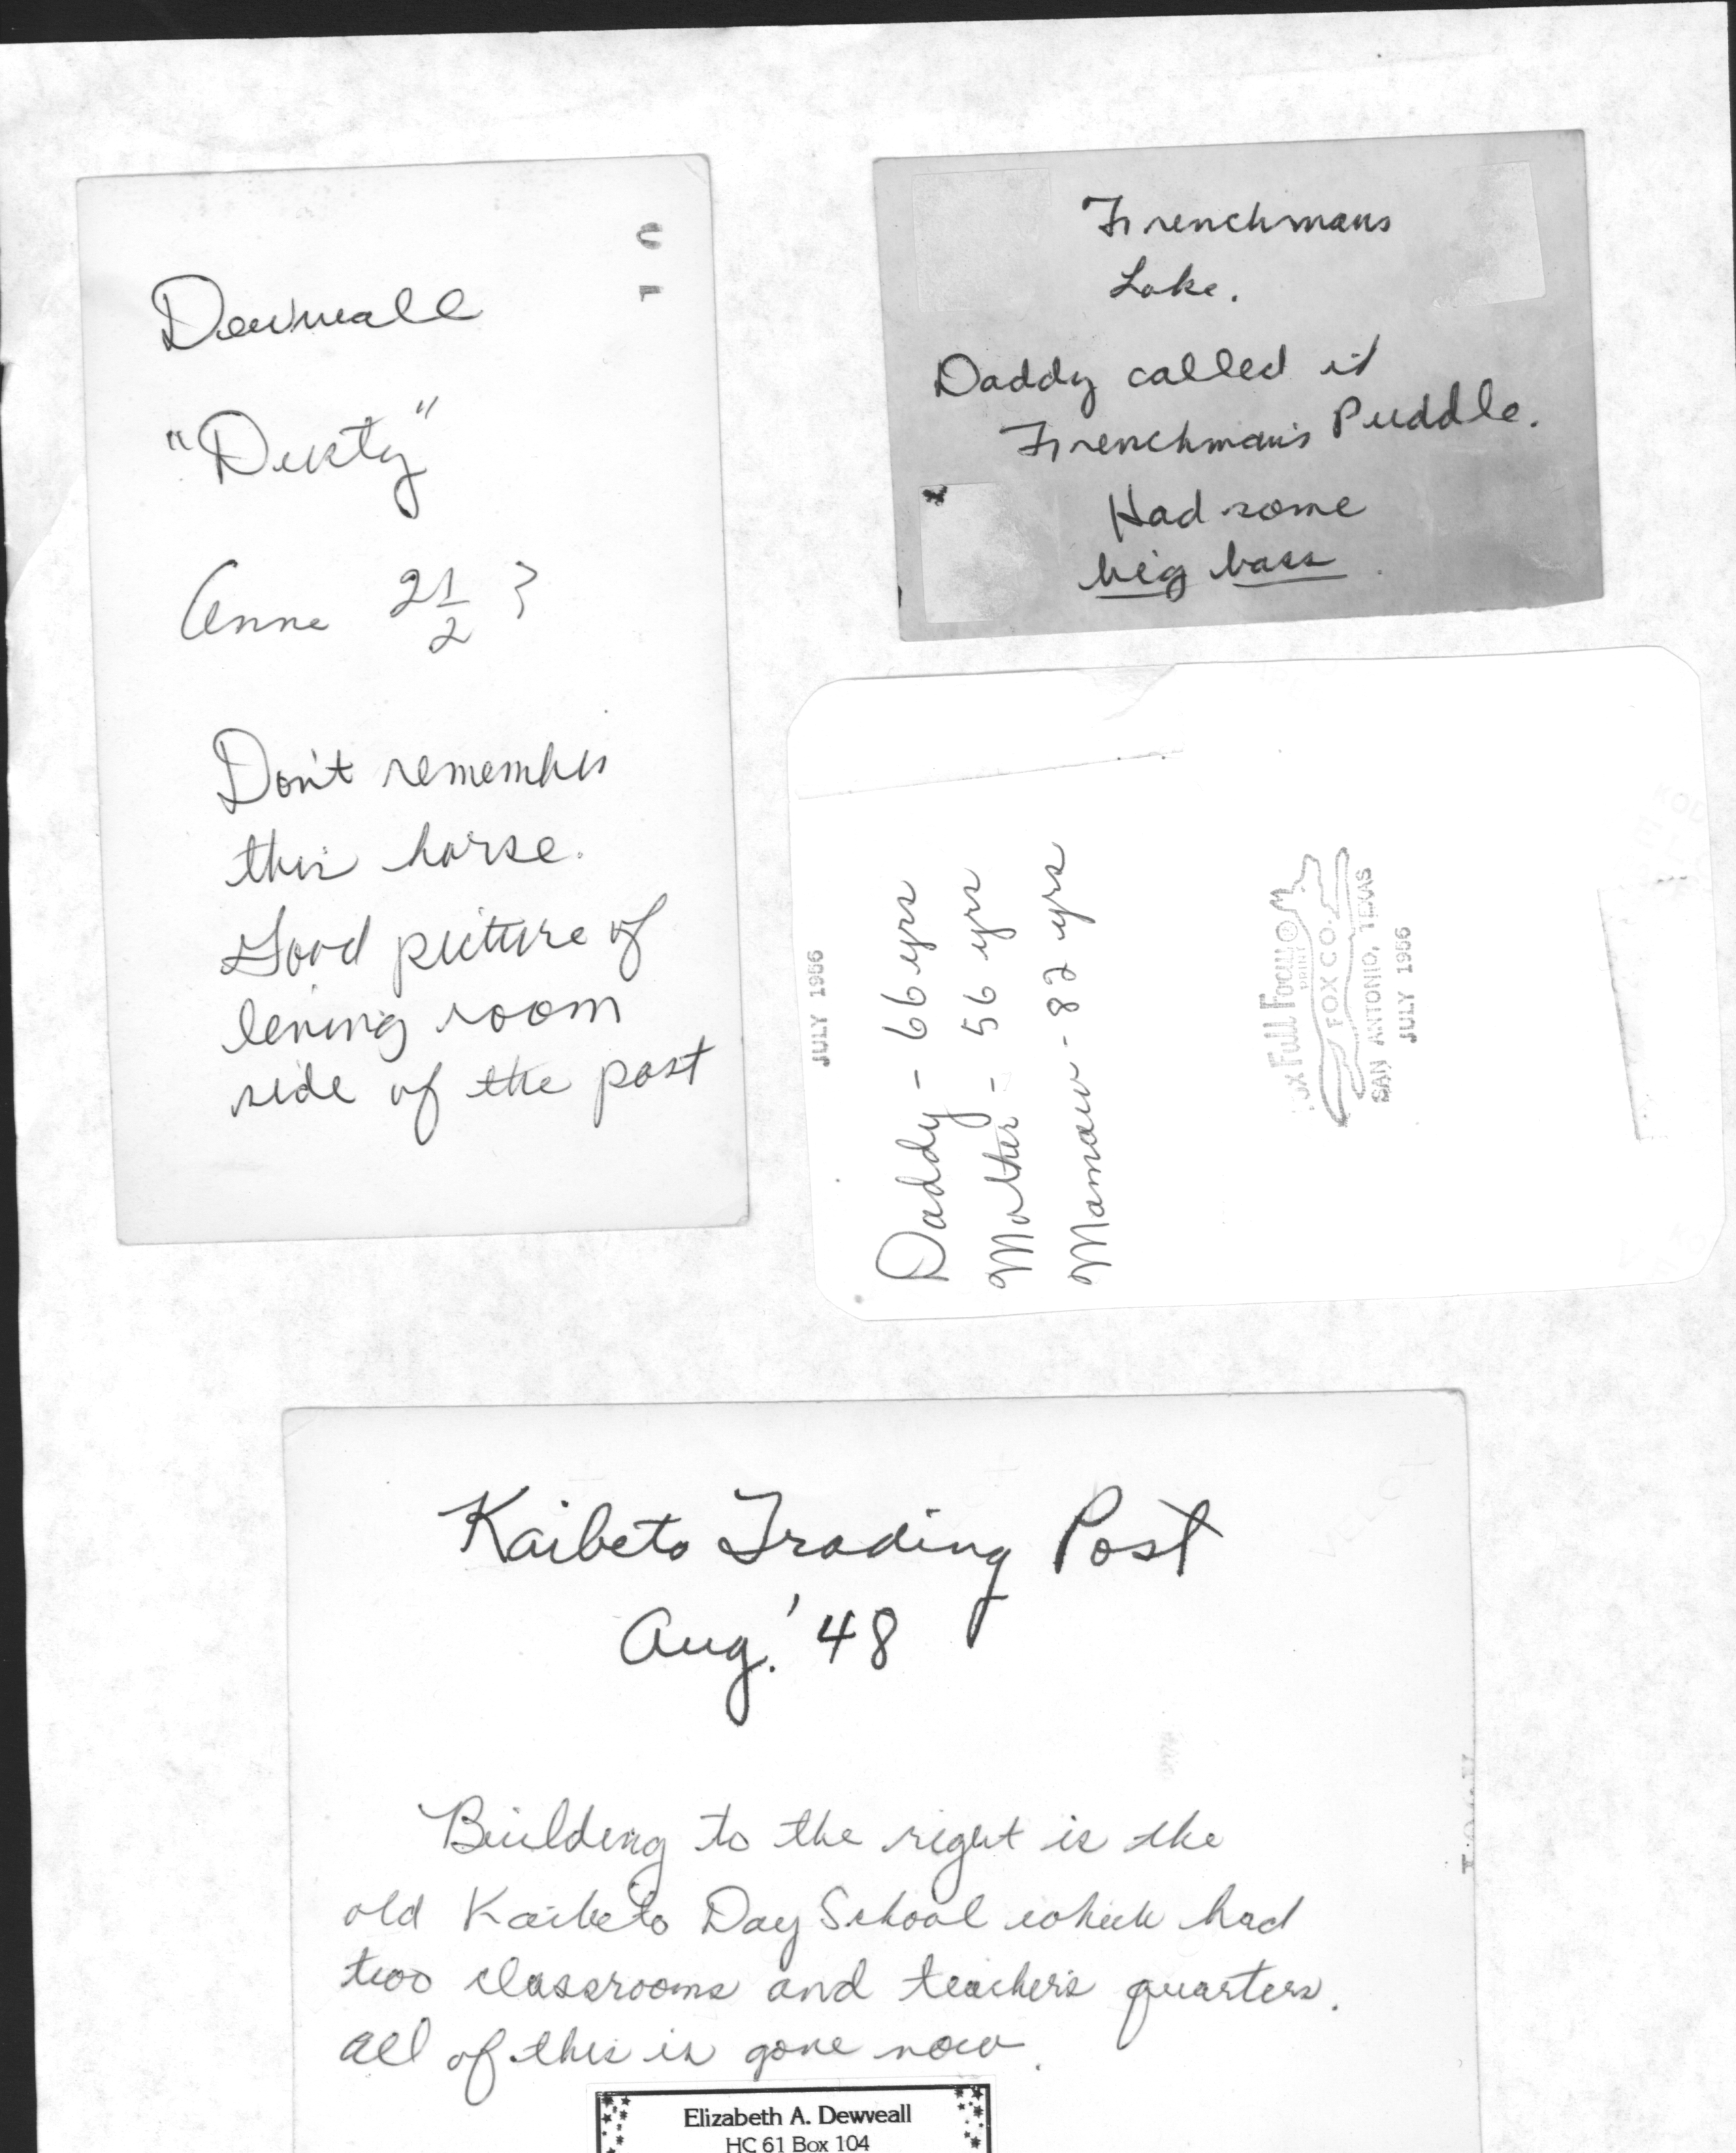 Dewveall
"Dusty"
Anne 2 1/2 ?
Don't remember
this horse.
Good picture of
living room
side of the post
Frenchmans
Lake.
Daddy called it
Frenchman's Puddle.
Had some
big bass
JULY 1956
Daddy - 66 yrs
Mother - 56 yrs
Mamaw - 82 yrs
Full Focus
PRINT
FOX CO.
SAN ANTONIO, TEXAS
JULY 1956
Kaibeto Trading Post
Aug. '48
Building to the right is the
old Kaibeto Day School which had
two classrooms and teacher's quarters.
All of this is gone now.
Elizabeth A. Dewveall
HC 61 Box 104